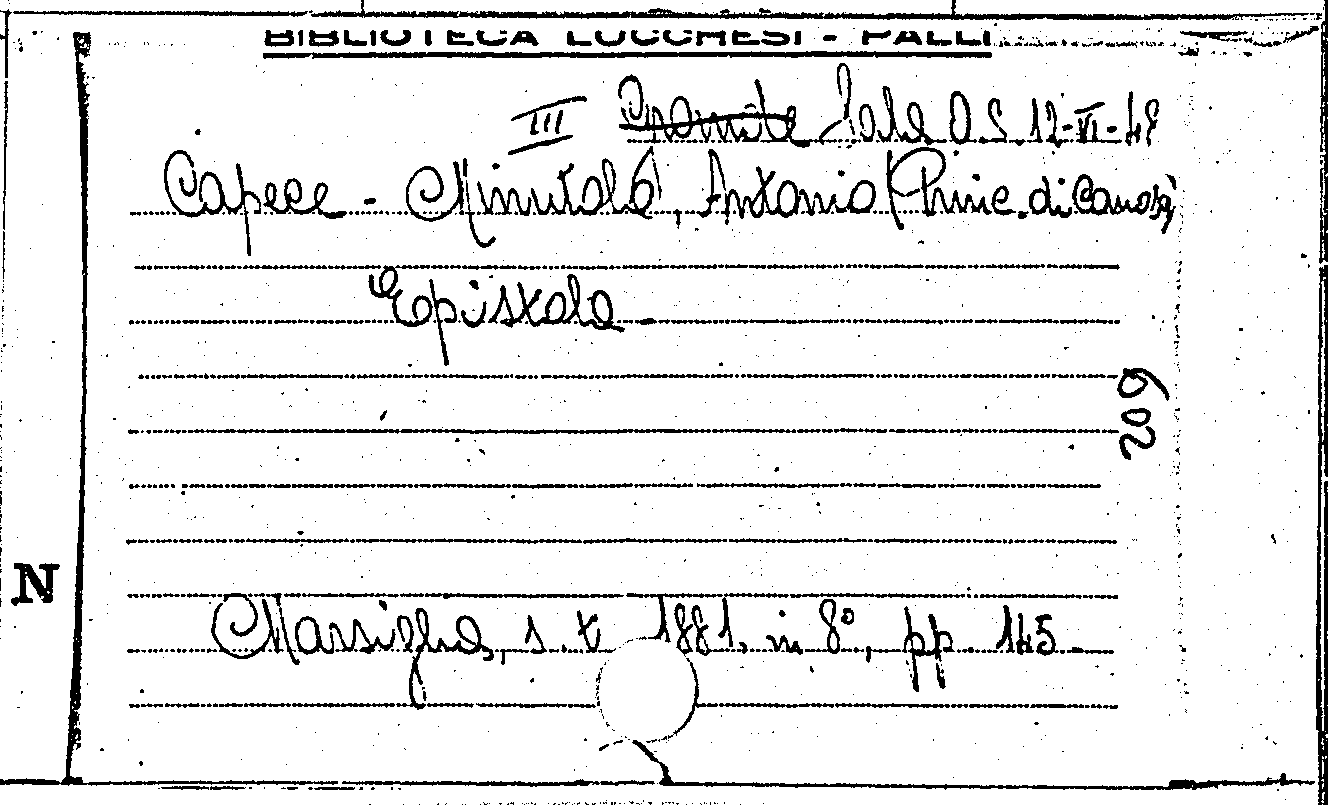 BIBLIOTECA LUCCHESI - PALLI
III Sala O.S. 12-VI-48
Capece - Minutolo, Antonio (Princ. di Canosa)
Epistola -
209
N
Marsiglia, s. t. 1881. in 8°, pp. 145 -